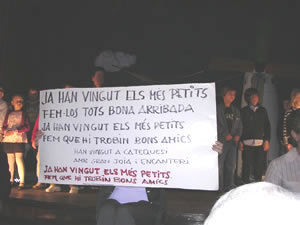 JA HAN VINGUT ELS MÉS PETITS
FEM-LOS TOTS BONA ARRIBADA
JA HAN VINGUT ELS MÉS PETITS
FEM QUE HI TROBIN BONS AMICS
HAN VINGUT A CATEQUESI
AMB GRAN JOIA I ENCANTERI
JA HAN VINGUT ELS MÉS PETITS
FEM QUE HI TROBIN BONS AMICS